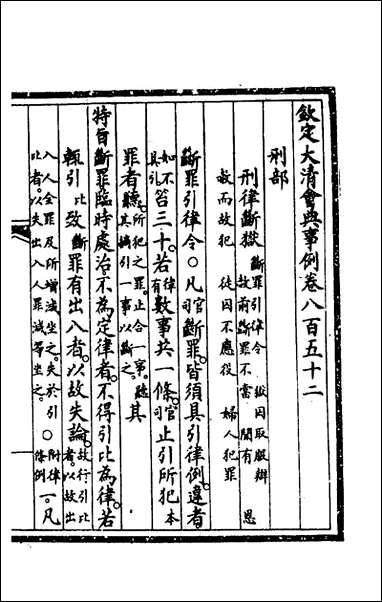 欽定大清會典事例卷八百五十二
刑部
刑律斷獄 斷罪引律令 獄囚取服辯 赦前斷罪不當 聞有恩
赦而故犯 徒囚不應役 婦人犯罪
斷罪引律令○凡官司斷罪。皆須具引律例。違者。
如不具引笞三十。若律有數事共一條。官司止引所犯本
罪者。聽。所犯之罪。止合一事。聽其摘引一事以斷之。其
特旨斷罪。臨時處治。不為定律者。不得引比為律。若
輒引比致斷罪有出入者。以故失論。故行引比者。以故出
入人全罪及所增減坐之。失於引比者。以失出入人罪減等坐之。○附律條例一。凡